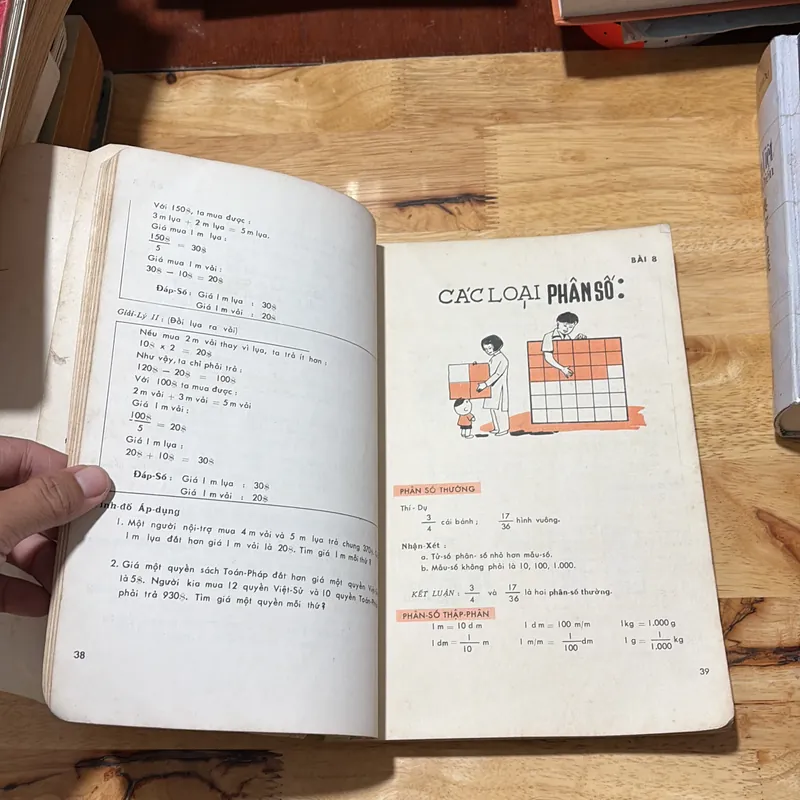 Với 150$, ta mua được :
3 m lụa + 2 m lụa = 5 m lụa.
Giá mua 1 m lụa :
150$/5 = 30$
Giá mua 1 m vải :
30$ − 10$ = 20$
Đáp-Số : Giá 1 m lụa : 30$
Giá 1 m vải : 20$
Giải-Lý II : (Đổi lụa ra vải)
Nếu mua 2 m vải thay vì lụa, ta trả ít hơn :
10$ × 2 = 20$
Như vậy, ta chỉ phải trả :
120$ − 20$ = 100$
Với 100$ ta mua được :
2 m vải + 3 m vải = 5 m vải
Giá 1 m vải :
100$/5 = 20$
Giá 1 m lụa :
20$ + 10$ = 30$
Đáp-Số : Giá 1 m lụa : 30$
Giá 1 m vải : 20$
Áp-dụng
1. Một người nội-trợ mua 4 m vải và 5 m lụa trả chung 370$
1 m lụa đắt hơn giá 1 m vải là 20$. Tìm giá 1 m mỗi thứ ?
2. Giá một quyển sách Toán-Pháp đắt hơn giá một quyển
là 5$. Người kia mua 12 quyển Việt-Sử và 10 quyển
phải trả 930$. Tìm giá một quyển mỗi thứ ?
38
BÀI 8
CÁC LOẠI PHÂN SỐ :
PHÂN SỐ THƯỜNG
Thí - Dụ
3/4 cái bánh ; 17/36 hình vuông.
Nhận-Xét :
a. Tử-số phân-số nhỏ hơn mẫu-số.
b. Mẫu-số không phải là 10, 100, 1.000.
KẾT LUẬN : 3/4 và 17/36 là hai phân-số thường.
PHÂN-SỐ THẬP-PHÂN
1 m = 10 d m 1 d m = 100 m/m 1kg = 1.000 g
1 dm = 1/10 m 1 m/m = 1/100 dm 1 g = 1/1.000 kg
39